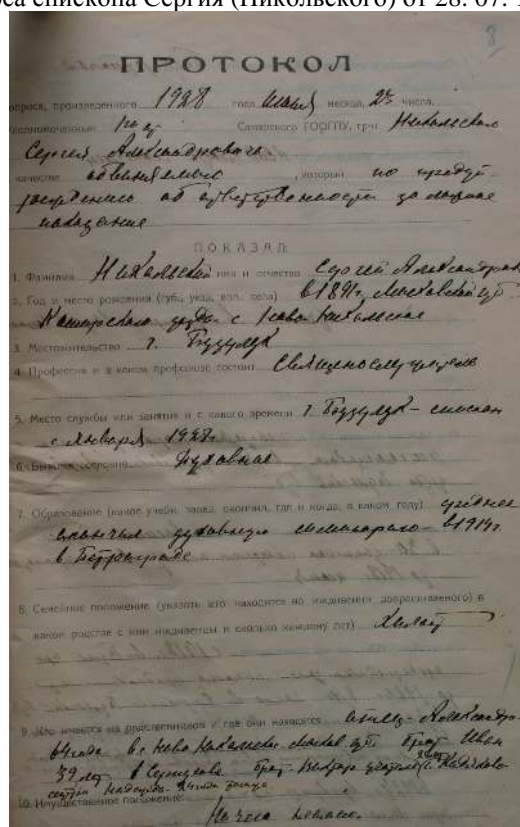 са епископа Сергия (Никольского) от 28. 07. 1
3
ПРОТОКОЛ
опроса, произведенного 1928 года месяца, числа.
Самарского ГООГПУ, гр-н Никольского
Сергея Александровича
качестве обвиняемого , который по предуп-
реждению об ответственности за ложное
показание
ПОКАЗАЛ:
1. Фамилия Никольский имя и отчество Сергей Александров
2. Год и место рождения (губ., уезд, вол., село) в 1891г. Московской губ
Каширского уезда с Ново Никольское
3. Местожительство г. Бузулук
4. Профессия и в каком профсоюзе состоит Священнослужитель
5. Место службы или занятия и с какого времени г. Бузулук – епископ
с января 1928г.
6. Бывшее сословие Духовное
7. Образование (какое учебн. завед. окончил, где и когда, в каком году) среднее
окончил духовную семинарию – в 1914г.
в Петрограде
8. Семейное положение (указать кто находится на иждивении допрашиваемого) в
каком родстве с ним иждивенцы и сколько каждому лет) Холост
9. Кто имеется из родственников и где они находятся отец – Александр
64 года в с Ново Никольское Москов губ. брат Иван
39 лет в брат
сестра Надежда 24 года
10. Имущественное положение:
Ничего не имею.